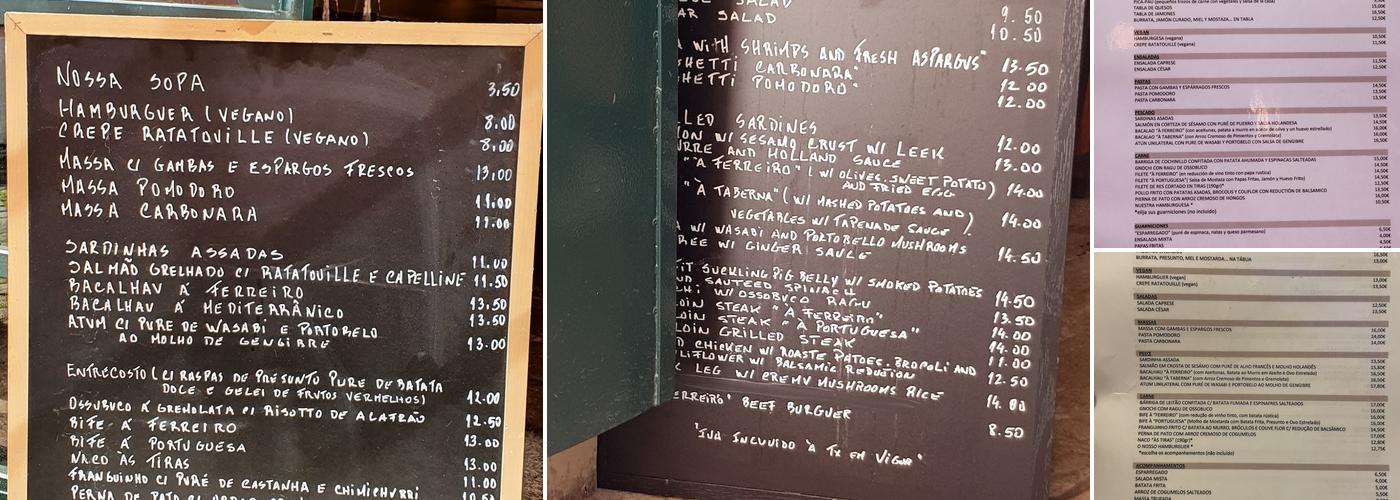 NOSSA SOPA 3,50
HAMBURGUER (VEGANO) 8.00
CREPE RATATOUILLE (VEGANO) 8,00
MASSA C/ GAMBAS E ESPARGOS FRESCOS 13,00
MASSA POMODORO 11.00
MASSA CARBONARA 11.00
SARDINHAS ASSADAS 11.00
SALMÃO GRELHADO C/ RATATOUILLE E CAPELLINE 11.50
BACALHAU Á FERREIRO 13.50
BACALHAU Á MEDITERRÂNICO 13.50
ATUM C/ PURE DE WASABI E PORTOBELO
AO MOLHO DE GENGIBRE 13.00
ENTRECOSTO (C/ RASPAS DE PRESUNTO PURE DE BATATA
DOCE E GELEI DE FRUTOS VERMELHOS) 12.00
OSSUBUCO Á GREMOLATA C/ RISOTTO DE ALAFRÃO 12.50
BIFE Á FERREIRO 13.00
BIFE Á PORTUGUESA 13.00
NACO ÀS TIRAS 11.00
FRANGUINHO C/ PURÉ DE CASTANHA E CHIMICHURRI
SALAD 9.50
AR SALAD 10.50
WITH SHRIMPS AND FRESH ASPARGUS" 13.50
GHETTI CARBONARA" 12 00
GHETTI POMODORO" 12.00
LLED SARDINES 12.00
ON W/ SESAMO CRUST W/ LEEK
URRE AND HOLLAND SAUCE 13.00
"À FERREIRO" (W/ OLIVES, SWEET POTATO)
AND FRIED EGG 14.00
"À TABERNA" (W/ MASHED POTATOES AND)
VEGETABLES W/ TAPENADE SAUCE) 14.00
A W/ WASABI AND PORTOBELLO MUSHROOMS
REE W/ GINGER SAUCE 14.50
FIT SUCKLING PIG BELLY W/ SMOKED POTATOES
AND SAUTEED SPINACH 14.50
CHI W/ OSSOBUCO RAGU 13.50
LOIN STEAK "À FERREIRO" 14.00
LOIN STEAK "À PORTUGUESA" 14.00
LOIN GRILLED STEAK 11.00
D CHICKEN W/ ROASTE PATOES, BROPOLI AND
LIFLOWER W/ BALSAMIC REDUTION 12.50
K LEG W/ CREMY MUSHROOMS RICE 14.00
ERREIRO" BEEF BURGUER 8.50
"IVA INCLUIDO À TX EM VIGOR"
TABLA DE QUESOS 15,00€
TABLA DE JAMONES 16,50€
BURRATA, JAMÓN CURADO, MIEL Y MOSTAZA... EN TABLA 12,50€
VEGAN
HAMBURGESA (vegana) 10,50€
CREPE RATATOUILLE (vegana) 11,50€
ENSALADAS
ENSALADA CAPRESE 11,50€
ENSALADA CÉSAR 12,50€
PASTAS
PASTA CON GAMBAS Y ESPÁRRAGOS FRESCOS 14,50€
PASTA POMODORO 13,50€
PASTA CARBONARA 13,50€
PESCADO
SARDINAS ASADAS 13,50€
SALMÓN EN CORTEZA DE SÉSAMO CON PURÉ DE PUERRO Y SALSA HOLANDESA 14,50€
BACALAO "À FERREIRO" (con aceitunas, patata a murro en aceite de oliva y un huevo estrellado) 16,50€
BACALAO "À TABERNA" (con Arroz Cremoso de Pimientos y Gremolata) 16,50€
ATÚN UNILATERAL CON PURE DE WASABI Y PORTOBELO CON SALSA DE GENGIBRE 16,50€
CARNE
BARRIGA DE COCHINILLO CONFITADA CON PATATA AHUMADA Y ESPINACAS SALTEADAS 15,00€
GNOCHI CON RAGU DE OSSOBUCO 14,50€
FILETE "À FERREIRO" (en reducción de vino tinto con papa rustica)
FILETE "À PORTUGUESA" (Salsa de Mostaza con Papas Fritas, Jamón y Huevo Frito)
FILETE DE RES CORTADO EN TIRAS (190gr)*
POLLO FRITO CON PATATAS ASADAS, BRÓCOLIS Y COLIFLOR CON REDUCTIÓN DE BALSAMICO
PIERNA DE PATO CON ARROZ CREMOSO DE HONGOS 16,00€
NUESTRA HAMBURGUESA * 10,50€
*elija sus guarniciones (no incluido)
GUARNICIONES
"ESPARREGADO" (puré de espinaca, natas y queso parmesano) 6,50€
ENSALADA MIXTA 4,00€
PAPAS FRITAS
BURRATA, PRESUNTO, MEL E MOSTARDA... NA TÁBUA 13,00€
VEGAN
HAMBURGUER (vegan) 13,00€
CREPE RATATOUILLE (vegan) 13,50€
SALADAS
SALADA CAPRESE 12,50€
SALADA CÉSAR 13,50€
MASSAS
MASSA COM GAMBAS E ESPARGOS FRESCOS 16,00€
PASTA POMODORO 14,00€
PASTA CARBONARA 14,00€
PEIXE
SARDINHA ASSADA 13,50€
SALMÃO EM CROSTA DE SÉSAMO COM PURÉ DE ALHO FRANCÊS E MOLHO HOLANDÊS 15,80€
BACALHAU "À FERREIRO" (com Azeitonas, Batata ao Murro em Azeite e Ovo Estrelado) 16,50€
BACALHAU "À TABERNA" (com Arroz Cremoso de Pimentos e Gremolata) 16,50€
ATUM UNILATERAL COM PURE DE WASABI E PORTOBELO AO MOLHO DE GENGIBRE 17,80€
CARNE
BÁRRIGA DE LEITÃO CONFITADA C/ BATATA FUMADA E ESPINAFRES SALTEADOS 17,00€
GNOCHI COM RAGU DE OSSOBUCO 16,00€
BIFE À "FERREIRO" (com redução de vinho tinto, com batata rústica)
BIFE À "PORTUGUESA" (Molho de Mostarda com Batata Frita, Presunto e Ovo Estrelado)
FRANGUINHO FRITO C/ BATATA AO MURRO, BRÓCULOS E COUVE FLOR C/ REDUÇÃO DE BALSÂMICO
PERNA DE PATO COM ARROZ CREMOSO DE COGUMELOS
NACO "ÀS TIRAS" (190gr)*
O NOSSO HAMBURGUER * 12,75€
*escolha os acompanhamentos (não incluído)
ACOMPANHAMENTOS
ESPARREGADO 6,50€
SALADA MISTA 4,00€
BATATA FRITA
ARROZ DE COGUMELOS SALTEADOS